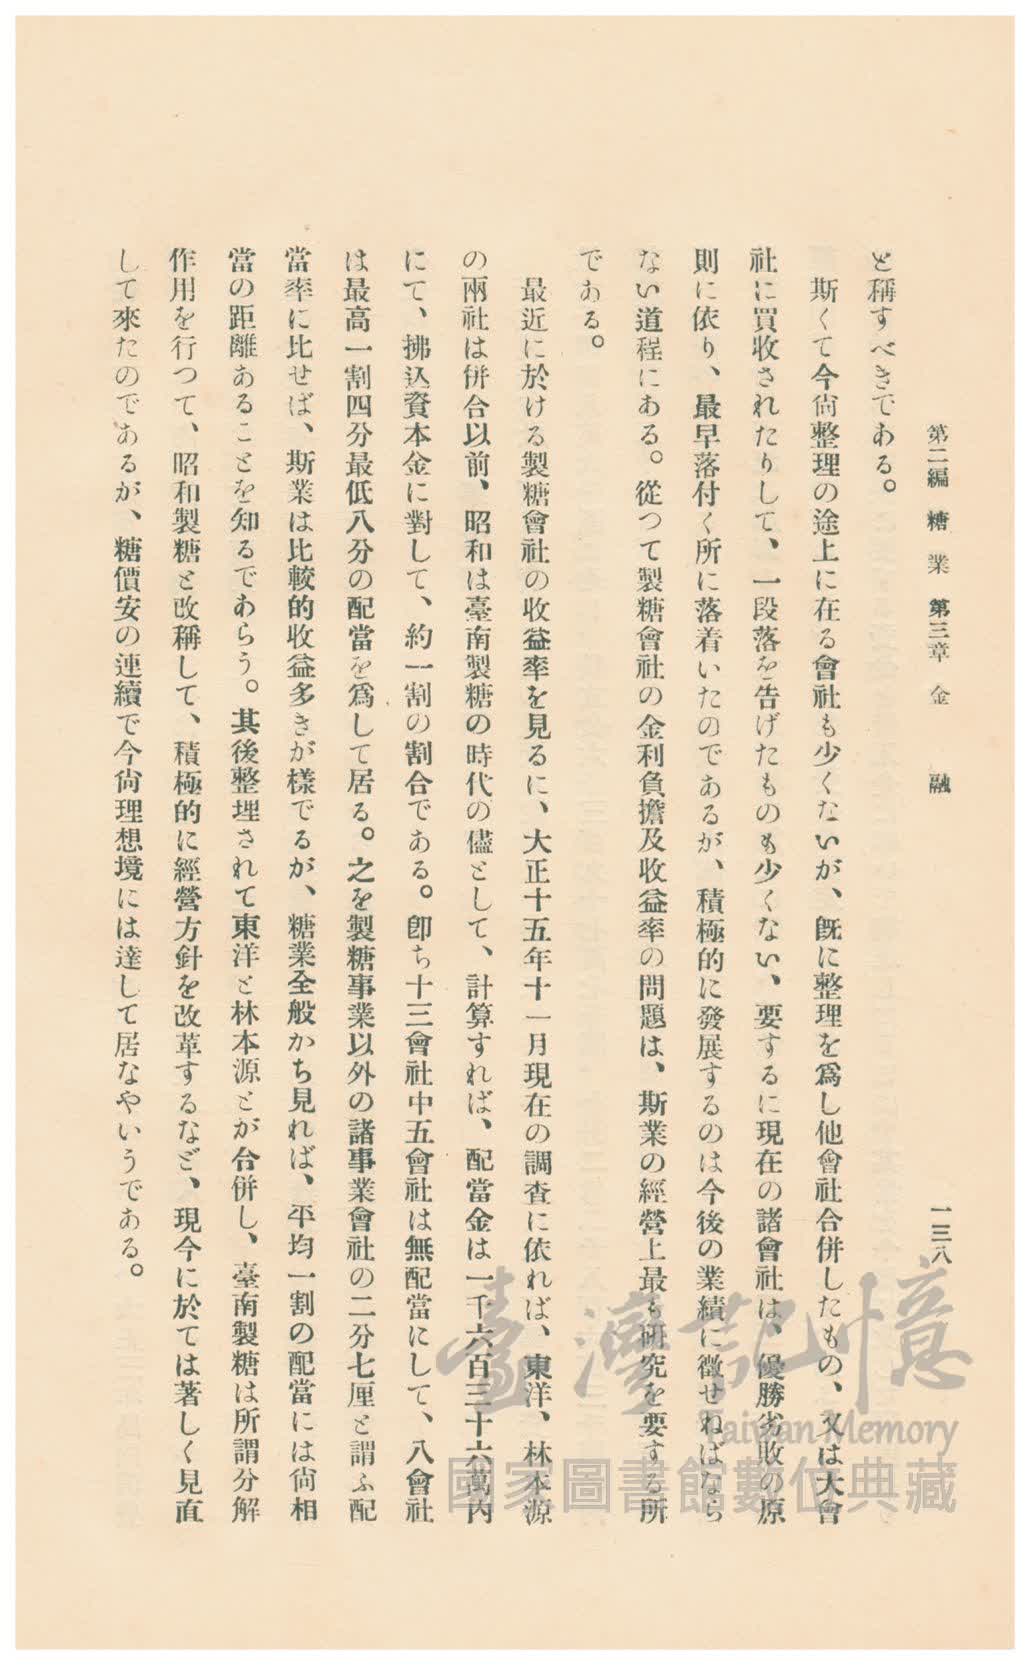 第二編 糖業 第三章 金融 一三八
と稱すべきである。
斯くて今尙整理の途上に在る會社も少くないが、既に整理を爲し他會社合併したもの、又は大會
社に買收されたりして、一段落を告げたものも少くない、要するに現在の諸會社は、優勝劣敗の原
則に依り、最早落付く所に落着いたのであるが、積極的に發展するのは今後の業績に徵せねばなら
ない道程にある。從つて製糖會社の金利負擔及收益率の問題は、斯業の經營上最も硏究を要する所
である。
最近に於ける製糖會社の收益率を見るに、大正十五年十一月現在の調査に依れば、東洋、林本源
の兩社は併合以前、昭和は臺南製糖の時代の儘として、計算すれば、配當金は一千六百三十六萬內
にて、拂込資本金に對して、約一割の割合である。卽ち十三會社中五會社は無配當にして、八會社
は最高一割四分最低八分の配當を爲して居る。之を製糖事業以外の諸事業會社の二分七厘と謂ふ配
當率に比せば、斯業は比較的收益多きが樣でるが、糖業全般かち見れば、平均一割の配當には尙相
當の距離あることを知るであらう。其後整理されて東洋と林本源とが合併し、臺南製糖は所謂分解
作用を行つて、昭和製糖と改稱して、積極的に經營方針を改革するなど、現今に於ては著しく見直
して來たのであるが、糖價安の連續で今尙理想境には達して居なやいうである。
臺灣記憶
Taiwan Memory
國家圖書館數位典藏